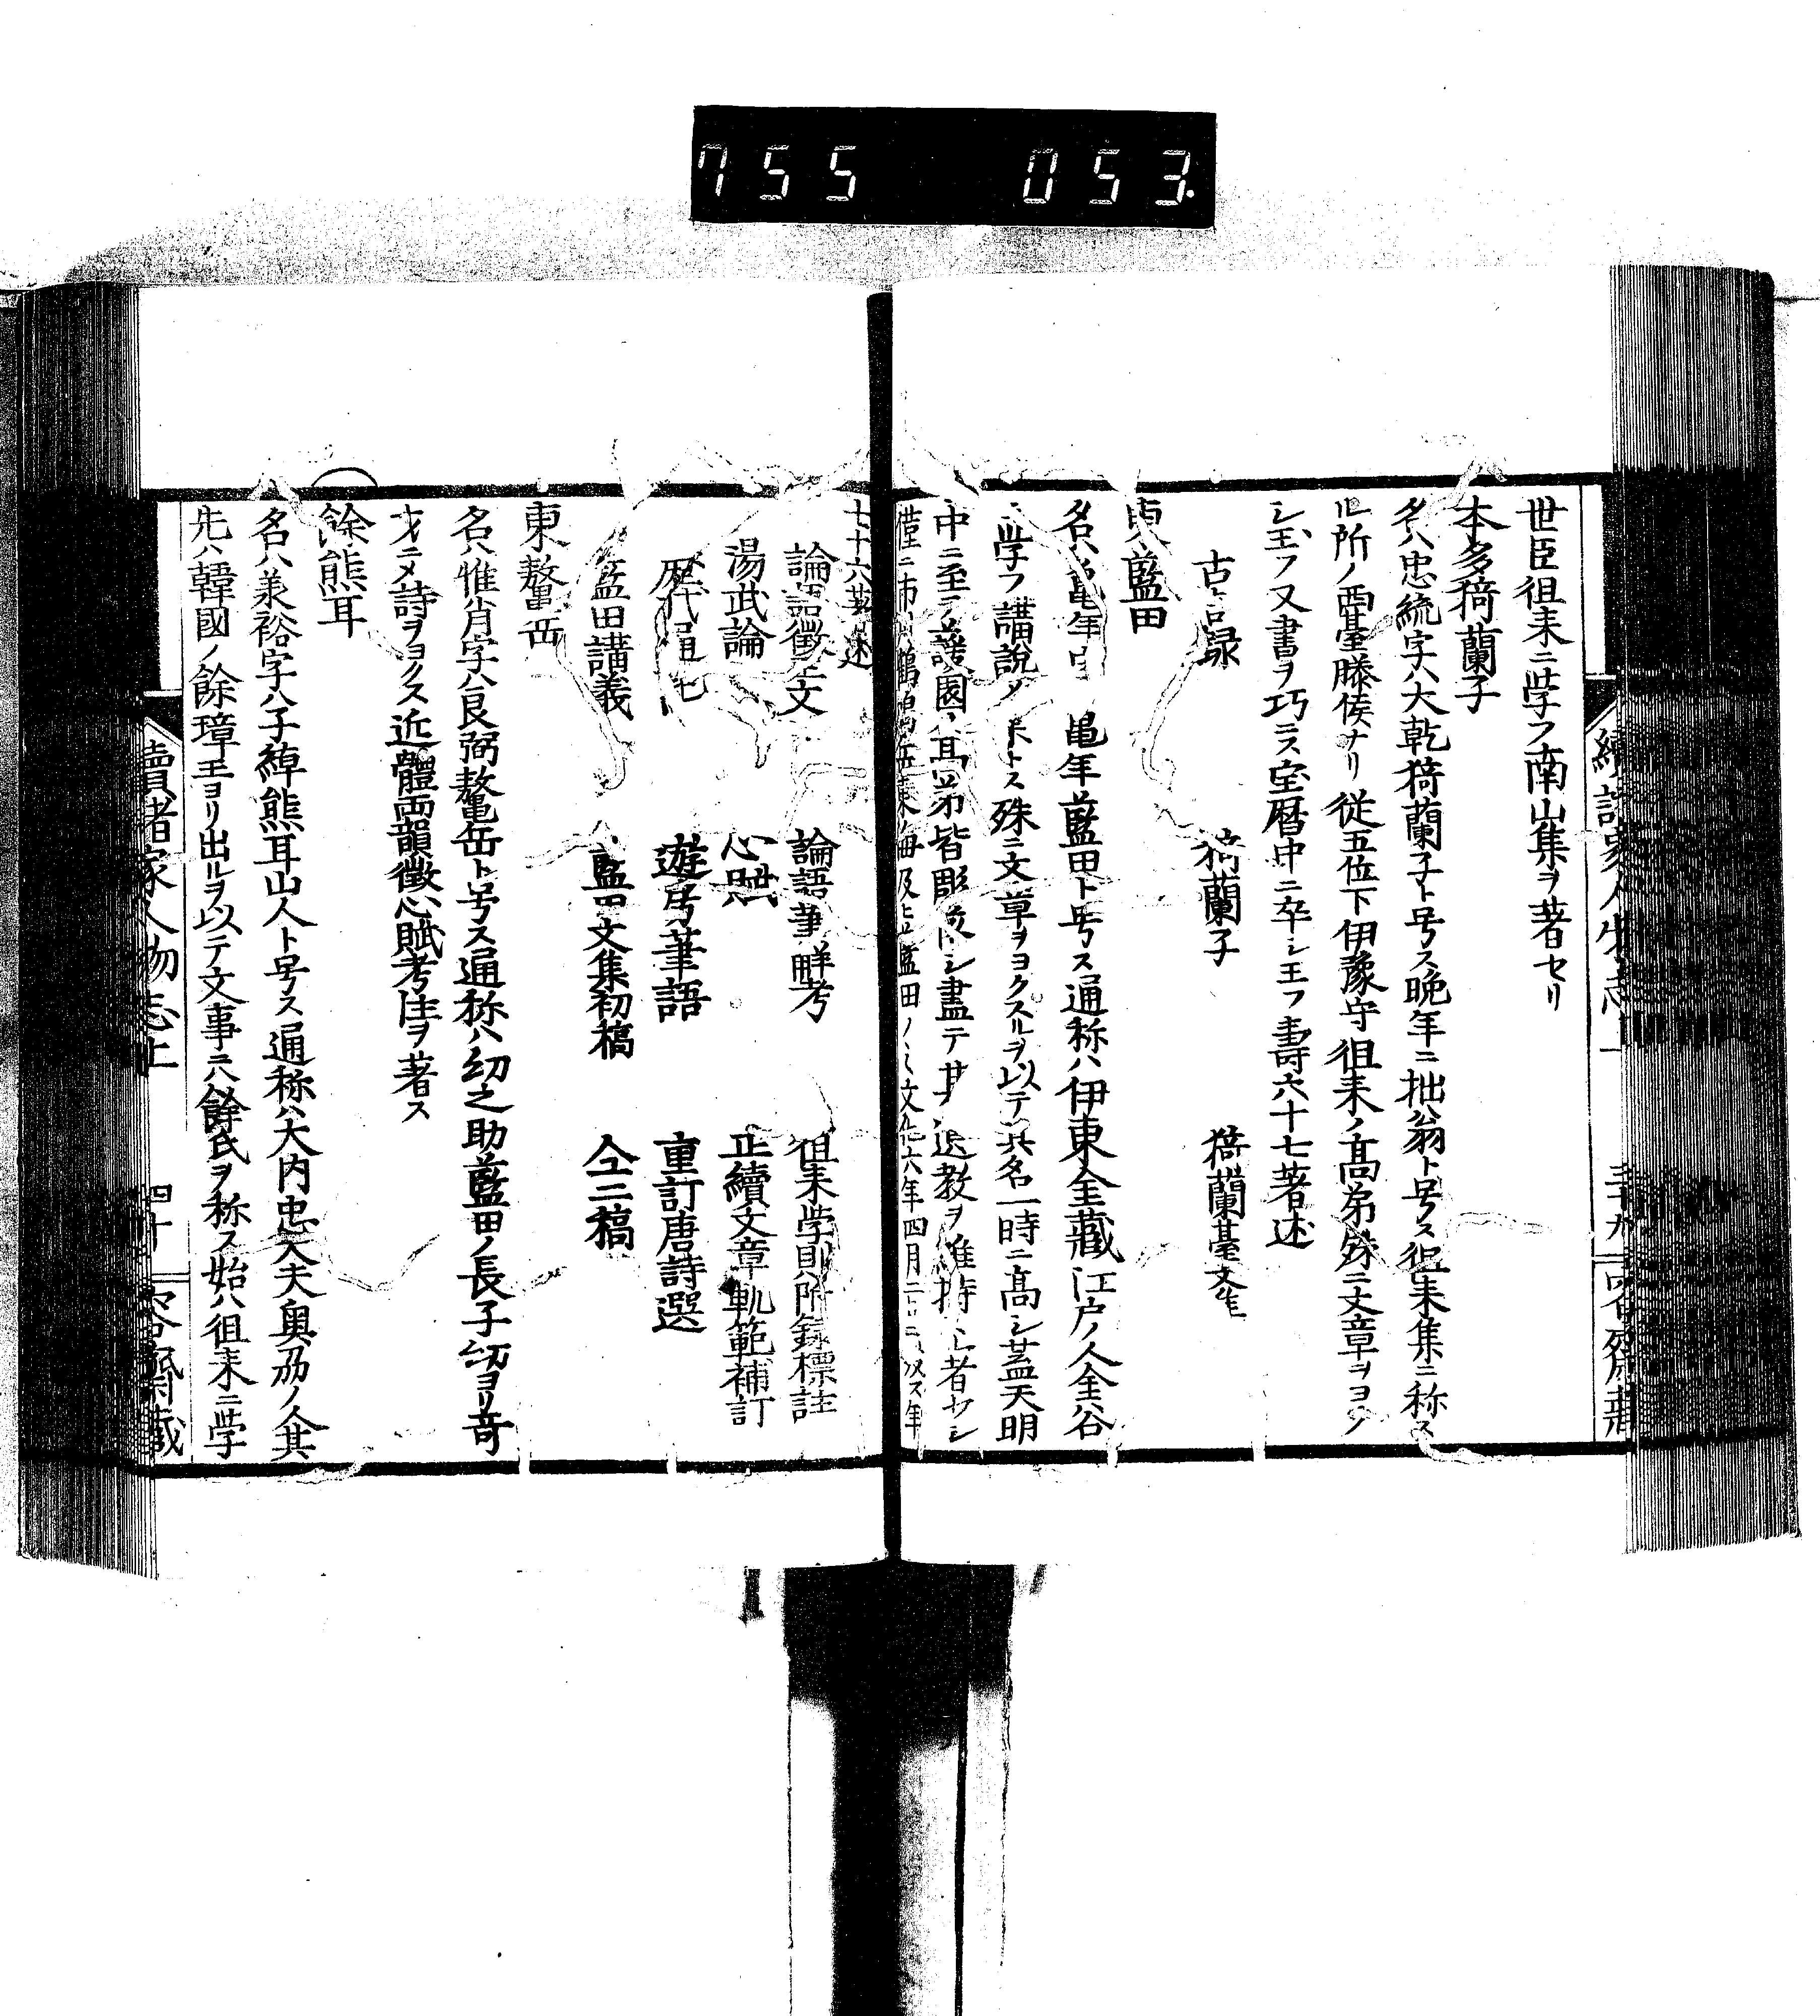 755 053.
世臣徂耒ニ学フ南山集ヲ著セリ
本多猗蘭子
名ハ忠統字ハ大乾猗蘭子ト号ス晩年ニ拙翁ト号ス徂耒集ニ称ス
ル所ノ西臺滕侯ナリ從五位下伊豫守徂耒ノ髙弟殊ニ文章ヲヨク
シ玉フ又書ヲ巧ニス宝暦中ニ卒シ王フ壽六十七著述
古言録 猗蘭子 猗蘭臺文集
東藍田
名ハ亀年 亀年藍田ト号ス通称ハ伊東金藏江戸ノ人金谷
ニ学フ講説ヲ トス殊ニ文草ヲヨクスルヲ以テ其名一時ニ髙シ蓋天明
中ニ至テ蘐園ノ髙弟皆彫 シ盡テ其 遺教ヲ維持 シ者
僅ニ市川鶴鳴 及 藍田ノミ文化六年四月二 日 ス年
七十六著述
論語徴 文 論語筆解考 徂耒学則附錄標註
湯武論 心賦 正續文章軌範補訂
歴代 遊 筆語 重訂唐詩選
藍田講義 藍田文集初稿 仝二稿
東鼇岳
名ハ惟肖字ハ良弼鼇岳ト号ス通称ハ幻之助藍田ノ長子幼ヨリ奇
才ニメ詩ヲヨクス近體両韻徴心賦考注ヲ著ス
餘熊耳
名ハ兼裕字ハ子綽熊耳山人ト号ス通称ハ大内忠太夫奥刕ノ人其
先ハ韓國ノ餘璋王ヨリ出ルヲ以テ文事ニハ餘氏ヲ称ス始ハ徂耒ニ学
續諸家人物志上 四十